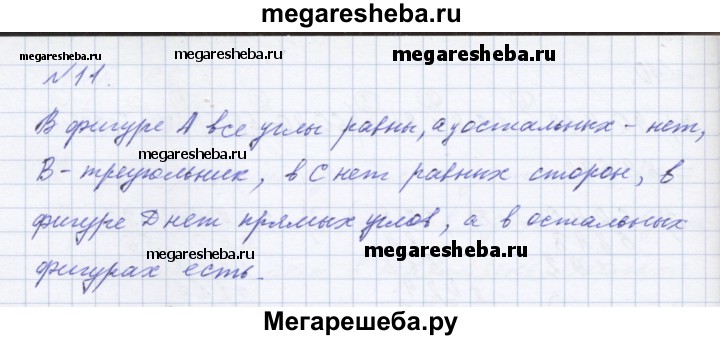 megaresheba.ru
megaresheba.ru megaresheba.ru
№11.
В фигуре А все углы равны, а у остальных - нет,
megaresheba.ru
В - треугольник, в С нет равных сторон, в
фигуре D нет прямых углов, а в остальных
megaresheba.ru megaresheba.ru
фигурах есть.
Мегарешеба.ру